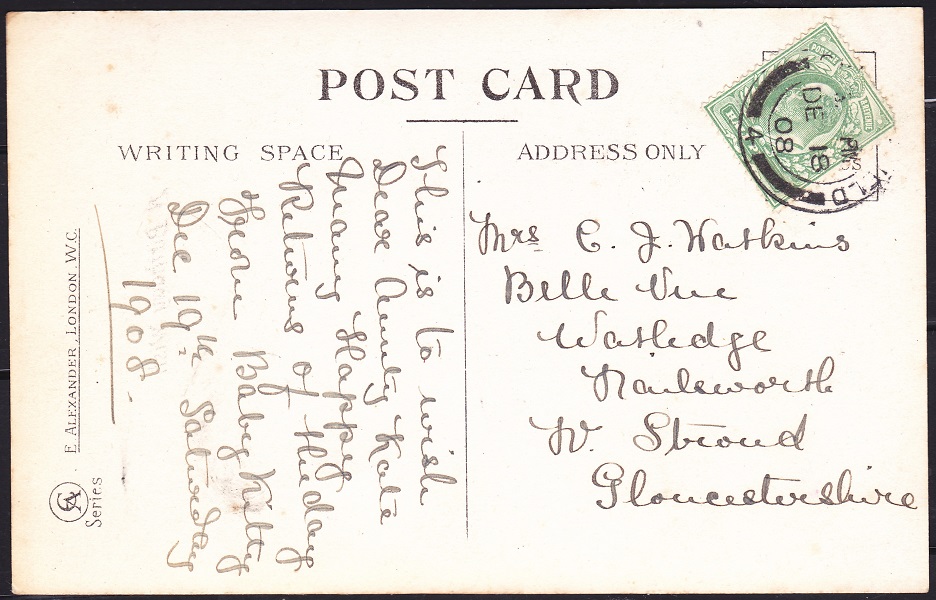 POST CARD
WRITING SPACE
ADDRESS ONLY
This is to wish
Dear Aunty Kate
Many Happy
Returns of the day
From Baby Kitty
Dec 19th Saturday
1908.
Mrs C. J. Watkins
Belle Vue
Watledge
Nailsworth
Nr. Stroud
Gloucestershire
DE 18
08
4
E. ALEXANDER, LONDON, W.C.
Series